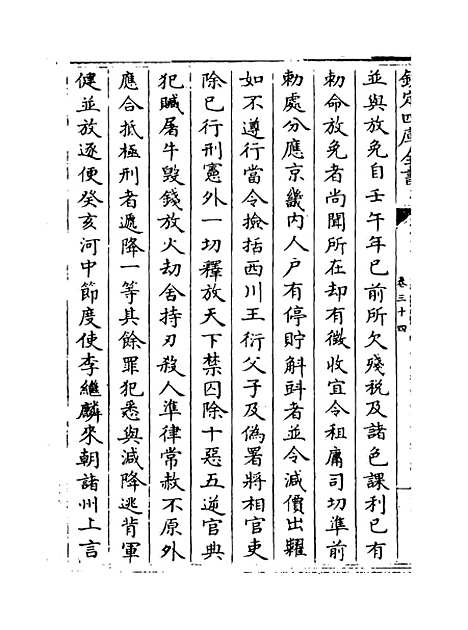 欽定四庫全書
卷三十四
並與放免自壬午年已前所欠殘税及諸色課利已有
勅命放免者尚聞所在却有徴收宜令租庸司切準前
勅處分應京畿内人户有停貯斛㪷者並令減價出糶
如不遵行當令撿括西川王衍父子及偽署將相官吏
除已行刑憲外一切釋放天下禁囚除十惡五逆官典
犯贓屠牛毁錢放火劫舍持刃殺人準律常赦不原外
應合抵極刑者遞降一等其餘罪犯悉與減降逃背軍
健並放逐便癸亥河中節度使李繼麟來朝諸州上言